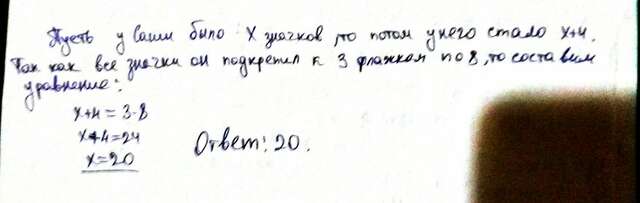 Пусть у Саши было X значков, то потом у него стало x+4.
Так как все значки он подкрепил к 3 флажкам по 8, то составим
уравнение:
x+4 = 3·8
x+4=24
x=20
Ответ: 20.